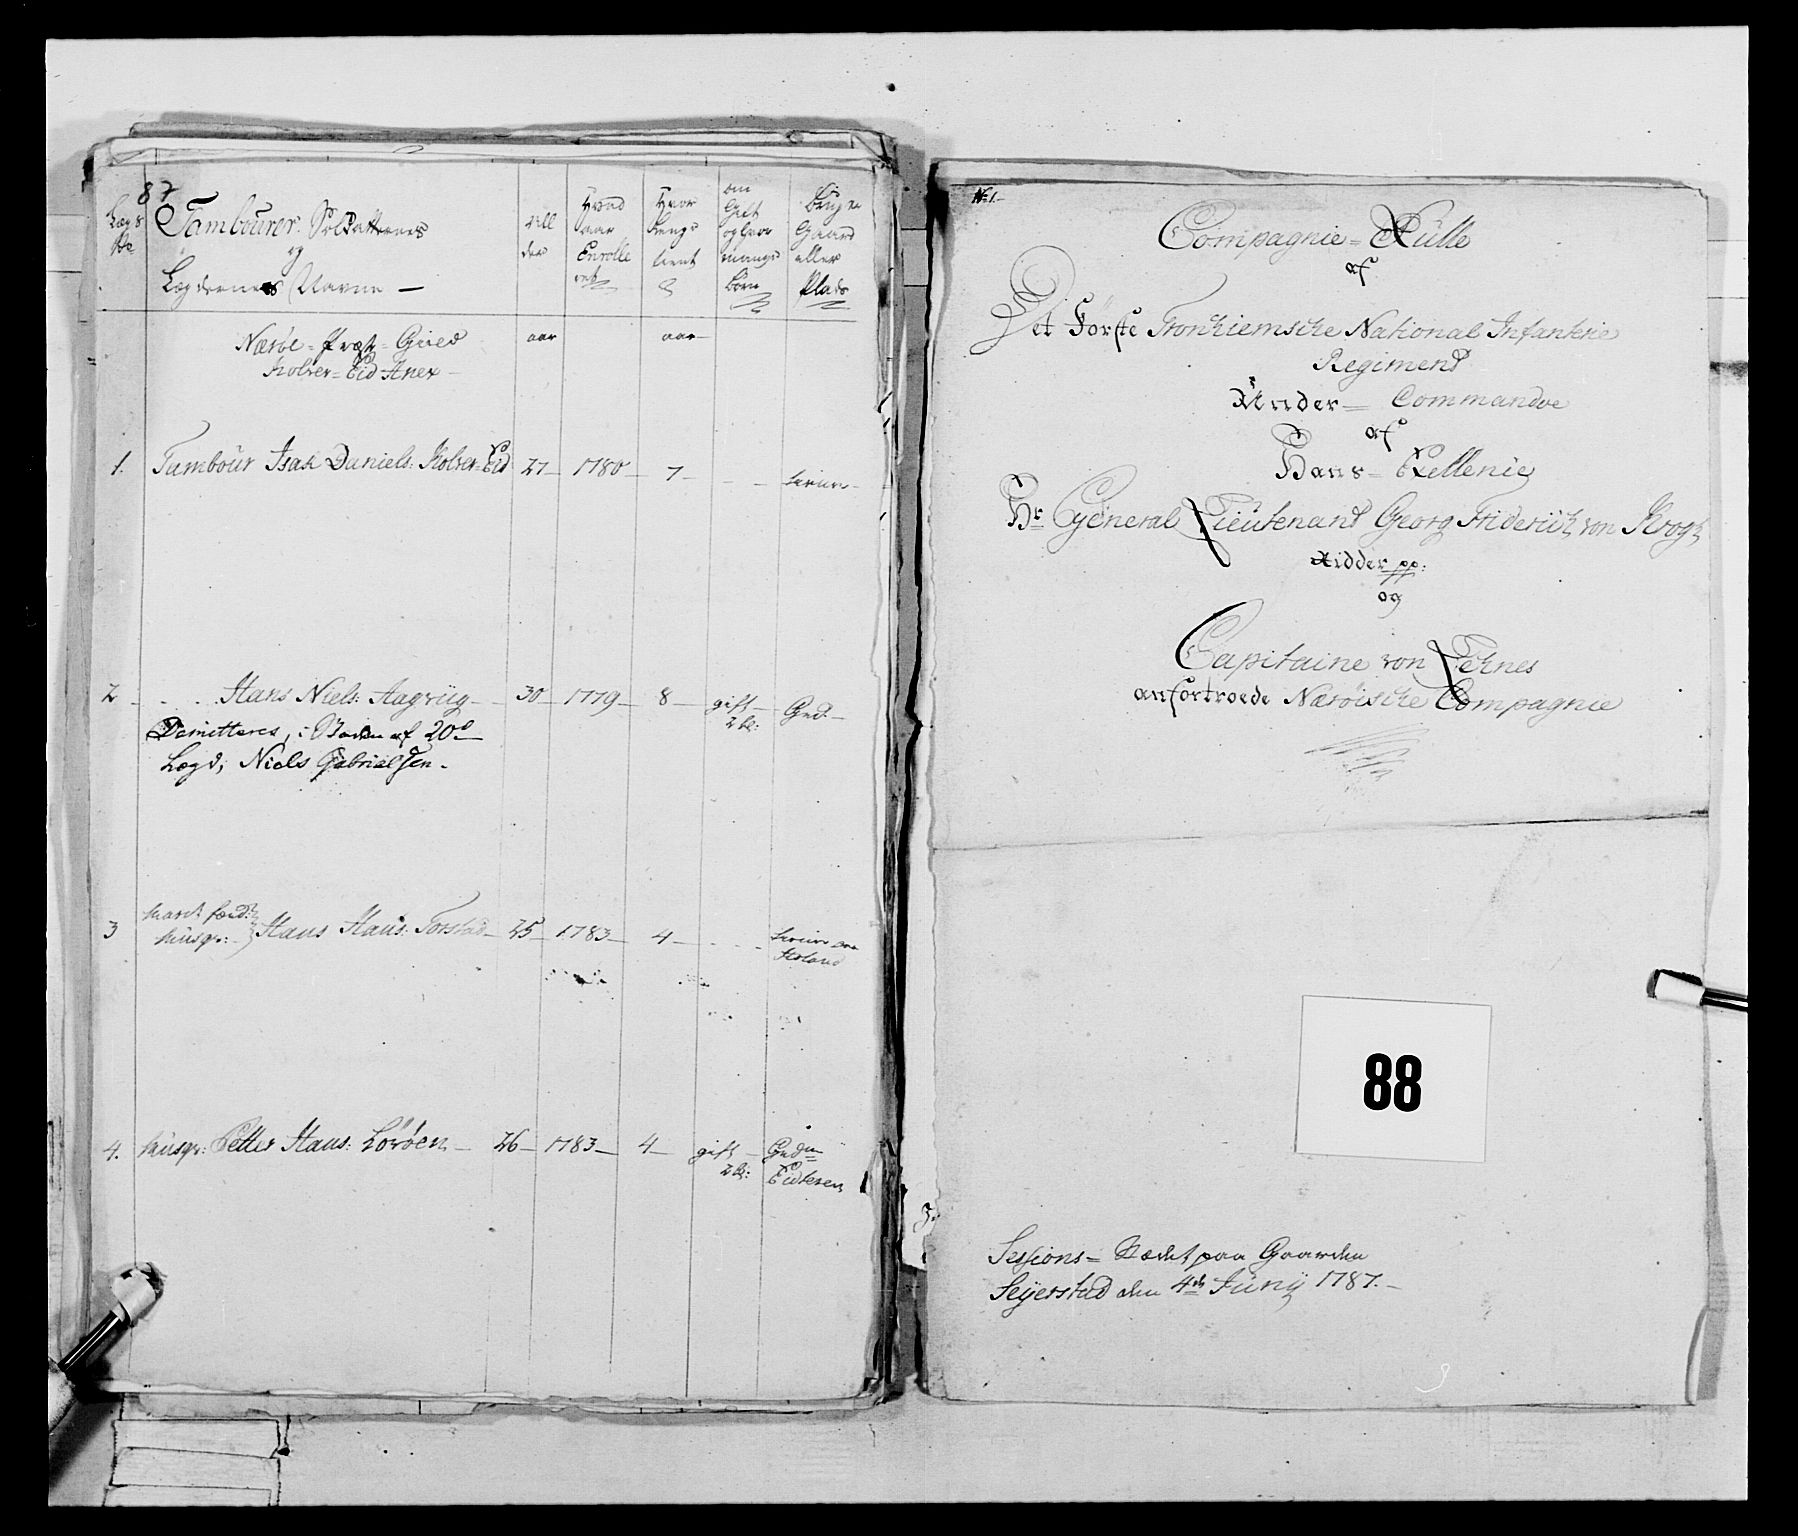 87
Lægs No
Tambourer Soldatternes
og
Lægdernes Navne —
All
der
Hvad
aar
Enrolle
ret
Hvor
længe
tient
om
Gift
og hvor
mange
Børn
Bruger
Gaard
eller
Plads
Nærøe = Præste = Gield
Kolver = Eid Anex —
aar
aar —
1. Tambour Isak Daniels: Kolver = Eid 27 — 1780 — 7 — - — tiener —
2 - . . . Hans Niels: Aagvüg — 30 — 1779 — 8 — gift — 2 b: Grd. —
Demitteres, i Staden af 20de
Lægd, Niels Gabrielsen.
3 Hans Hans: Torstad — 25 — 1783 — 4 — - - - tiener
musqr:
4. musqr: Petter Hans: Lörøen — 26 — 1783 — 4 — gift — 2 b: Grdm
No 1.
Compagnie = Rulle
af
Det Første Tronhiemsche National Infanterie
Regiment
Under = Commando
af
Hans = Exellence
Hr General Lieutenand Georg Friderich von Krogh
Ridder pp:
og
Capitaine von
anfortroede Nærøische Compagnie
88
3.
Sessions = Stædet paa Gaarden
Seyerstad den 4de Juny 1787. —